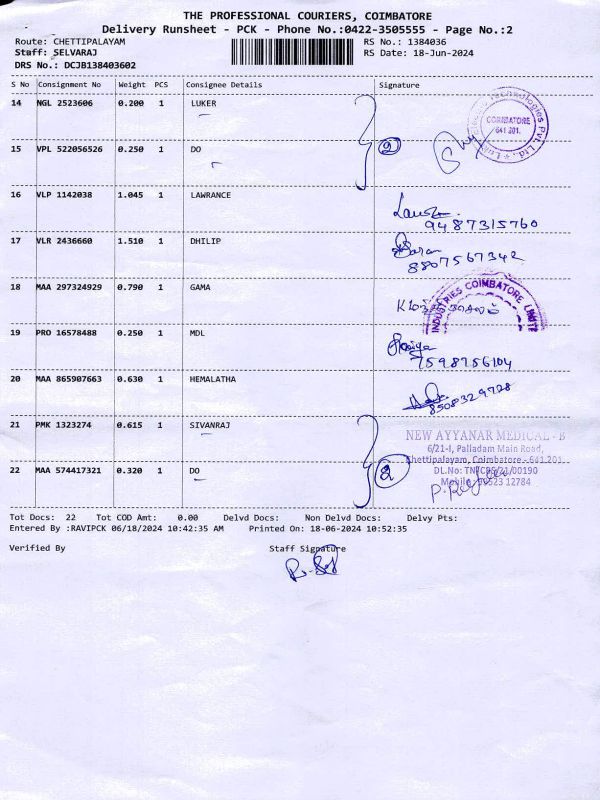 THE PROFESSIONAL COURIERS, COIMBATORE
Delivery Runsheet - PCK - Phone No.:0422-3505555 - Page No.:2
Route: CHETTIPALAYAM RS No.: 1384036
Staff: SELVARAJ RS Date: 18-Jun-2024
DRS No.: DCJB138403602
S No Consignment No Weight PCS Consignee Details Signature
14 NGL 2523606 0.200 1 LUKER
COIMBATORE
641 201.
15 VPL 522056526 0.250 1 DO 2
16 VLP 1142038 1.045 1 LAWRANCE
9487315760
17 VLR 2436660 1.510 1 DHILIP
8807567342
18 MAA 297324929 0.790 1 GAMA
INDUSTRIES COIMBATORE LIMITE
19 PRO 16578488 0.250 1 MDL
7598756104
20 MAA 865907663 0.630 1 HEMALATHA
8508329728
21 PMK 1323274 0.615 1 SIVANRAJ
NEW AYYANAR MEDICAL - B
6/21-I, Palladam Main Road,
Chettipalayam, Coimbatore - 641 201.
22 MAA 574417321 0.320 1 DO 2
Tot Docs: 22 Tot COD Amt: 0.00 Delvd Docs: Non Delvd Docs: Delvy Pts:
Entered By :RAVIPCK 06/18/2024 10:42:35 AM Printed On: 18-06-2024 10:52:35
Verified By Staff Signature